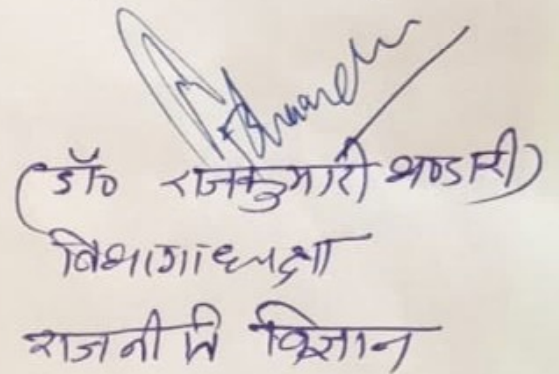 (डॉ० राजकुमारी भण्डारी)
विभागाध्यक्षा
राजनीति विज्ञान